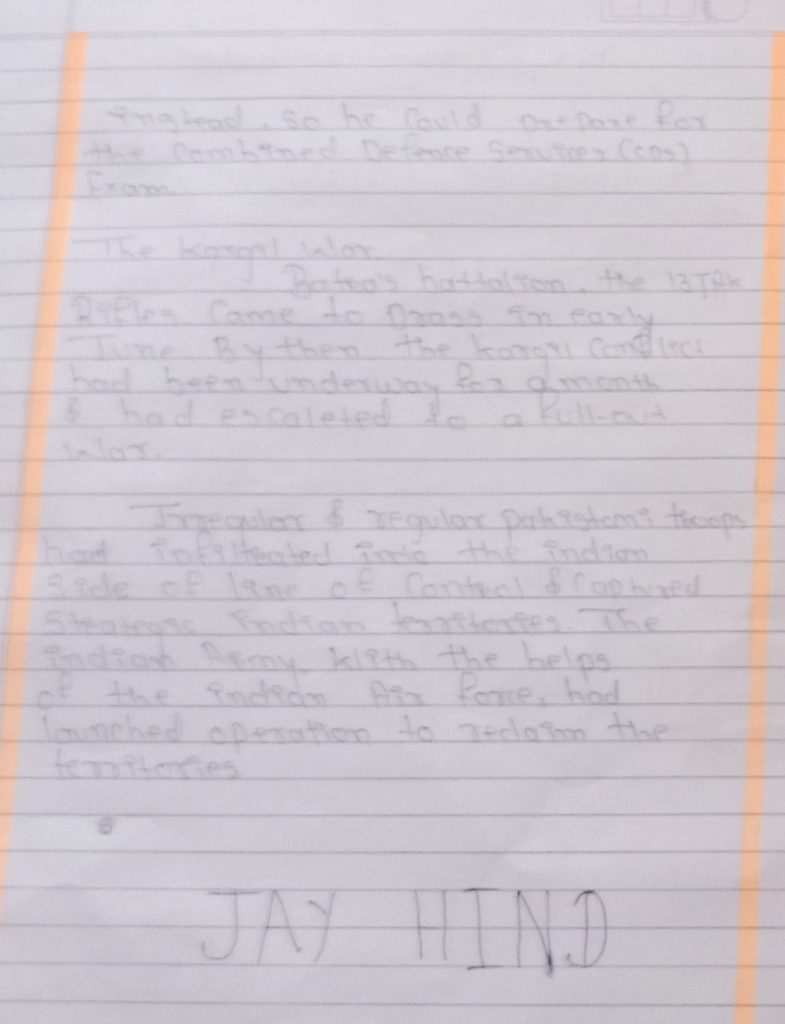 instead. So he could prepare for
the Combined Defence Services (CDS)
Exam
The Kargil War
Batra's battalion, the 13 JAK
Rifles Came to Drass in early
June By then the kargil Conflict
had been underway for a month
& had escaleted to a full-out
War.
Irregular & regular pakistani troops
had infilteated into the indian
Side of line of Control & Captured
Steategic indian territories. The
indian Army, With the helps
of the indian Air force, had
launched operation to reclaim the
territories
JAY HIND